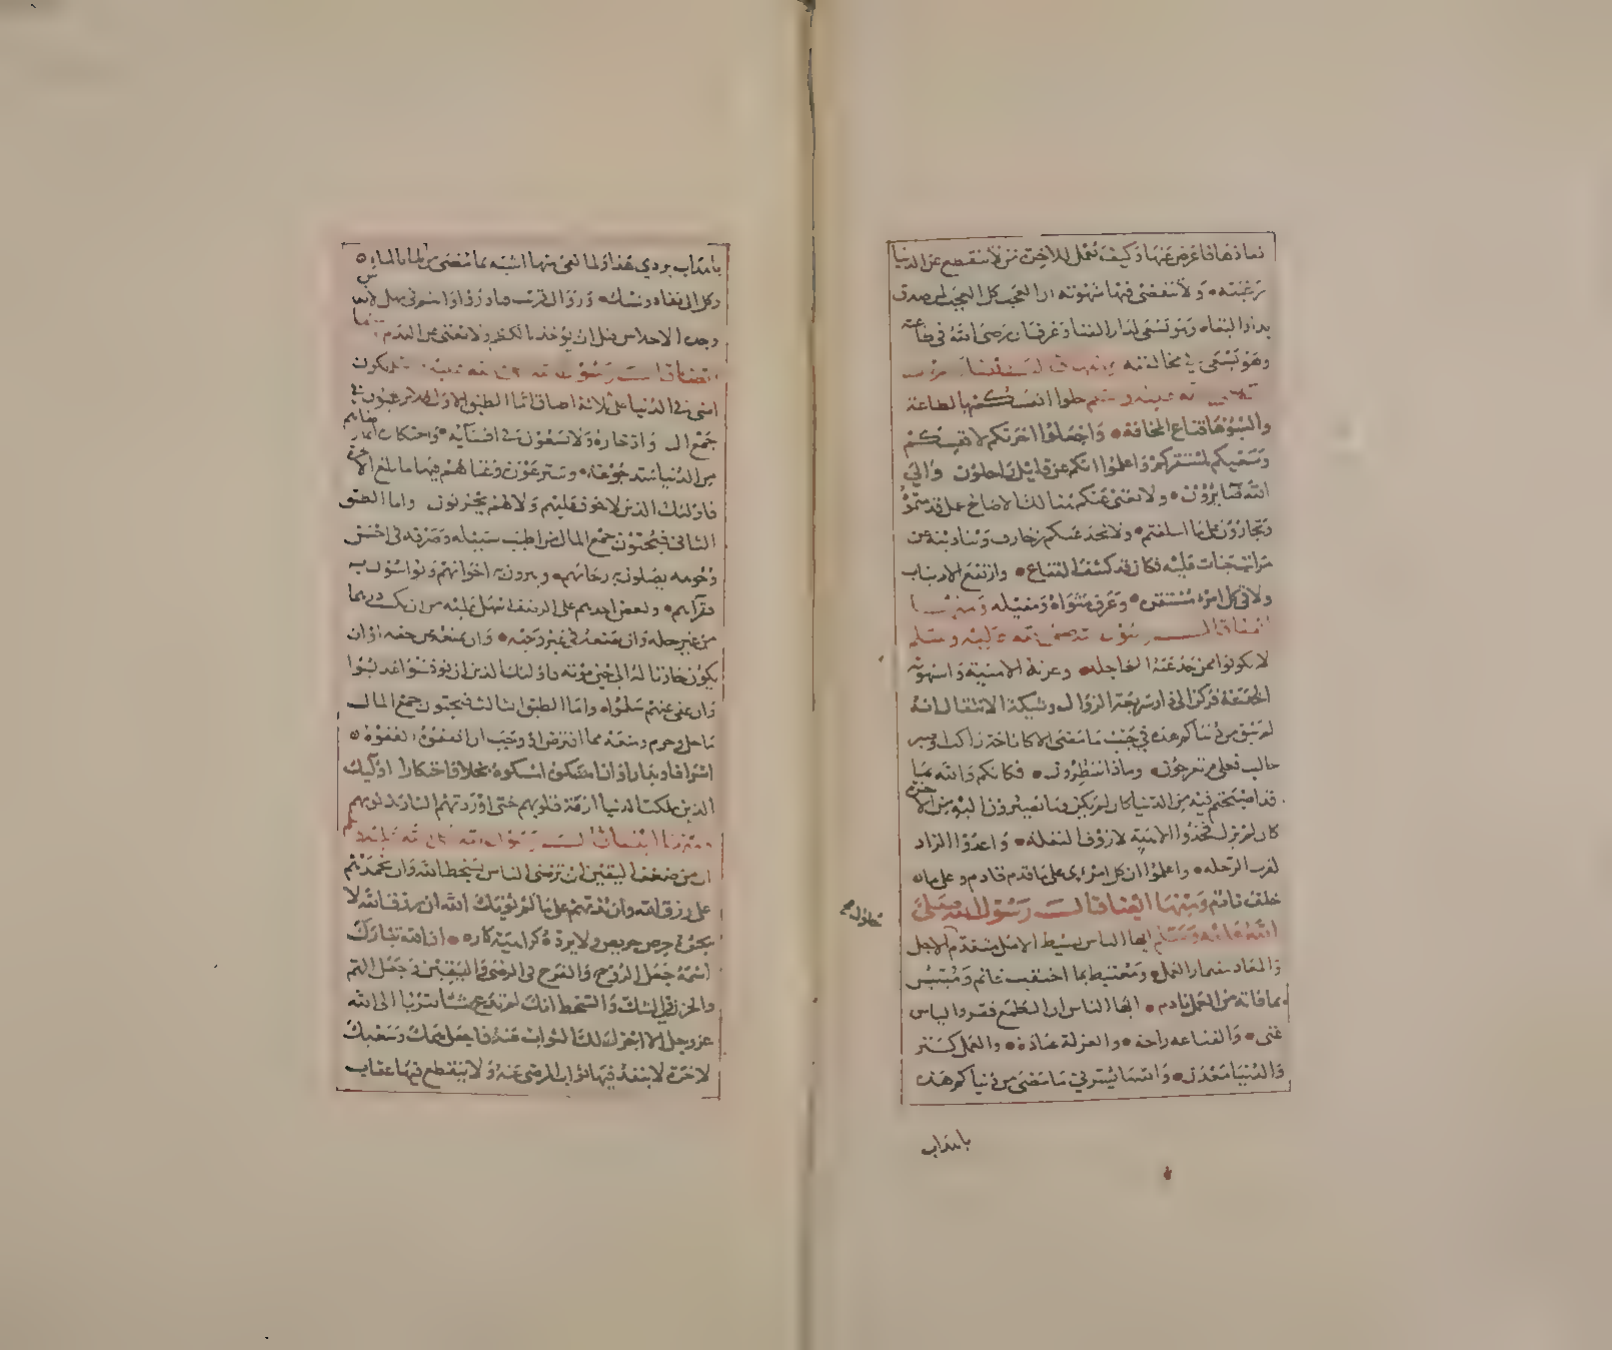 نفاذها فاعرض عنها وكيف يعمل للاخرة من لا تنقطع عن الدنيا
رغبته ولا تنقضي فيها شهوته ان العجب كل العجب لمن صدق
بدار البقاء وهو يسعى لدار الفنا وعرف ان رضى الله في طاعته
وهو يسعى في مخالفته
حلوا انفسكم بالطاعة
والبسوها قناع المخافة واجعلوا اخرتكم لانفسكم
وسعيكم لمستقركم واعلموا انكم عن قليل راحلون والي
الله صايرون ولا يغني عنكم هنالك الا صالح عمل قدمتموه
ولا تخدعنكم زخارف
مراتب جنات فكان قد كشف القناع وارتفع الارتياب
ولاقى كل امرء مستقره وعرف مثواه ومقيله
لا تكونوا ممن خدعته العاجله وغرته الامنية واستهوته
الخدعة فركن الى دار سريعة الزوال وشيكة الانتقال انه
لم يبق من دنياكم هذه في جنب ما مضى الا كاناخة راكب او صر
حالب فعلى م تعرجون وماذا تنتظرون فكانكم والله بما
قد اصبحتم فيه من الدنيا كان لم يكن وما تصيرون اليه من الاخرة
كان لم يزل فخذوا الاهبة لازوف النقله واعدوا الزاد
لقرب الرحله واعلموا ان كل امرئ على ما قدم قادم وعلى ما
خلف نادم ومنها ايضا قال رسول الله صلى
الله عليه وسلم ايها الناس بسيط الامل متقدم الاجل
والمعاد مضمار العمل ومغتبط بما احتقب غانم ومبتئس
بما فاته من العمل نادم ايها الناس ان الطمع فقر والياس
غنى والقناعه راحة والعزلة عبادة والعمل كنز
والدنيا معدن والله ما يسرني ما مضى من دنياكم هذه
باهداب
باهداب بردي هذا ولما بقى منها اشبه بما مضى من الماء بالماء
وكل الى نفاد وشيك وزوال قريب فبادروا وانتم في مهل الانفاس
وجدة الاحلاس قبل ان يؤخذ بالكظم ولا يغني عن الندم
يكون
امتي في الدنيا على ثلاثة اطباق اما الطبق الاول فلا يرغبون في
جمع المال وادخاره ولا يسعون في اقتنايه واحتكاره انما رضاهم
من الدنيا سد جوعة وستر عورة وغناهم فيها ما بلغ الاخرة
فاولئك الذين لا خوف عليهم ولا هم يحزنون واما الطبق
الثاني فيحبون جمع المال من اطيب سبيله وصرفه في احسن
وجوهه يصلون به رحامهم ويبرون به اخوانهم ويواسون به
فقرآهم ولعض احدهم على الرضف اسهل عليه من ان يكسب درهما
من غير حله وان يضعه في غير وجهه وان يمنعه من حقه او ان
يكون خازنا له الى حين موته فاولئك الذين ان نوقشوا عذبوا
وان عفي عنهم سلموا واما الطبق الثالث فيحبون جمع المال
مما حل وحرم ومنعه مما افترض او وجب ان انفقوه انفقوه
اسرافا وبدارا وان امسكوه امسكوه بخلا واحتكارا اوليك
الذين ملكت الدنيا ازمة قلوبهم حتى اوردتهم النار بذنوبهم
ان من ضعف اليقين ان ترضى الناس بسخط الله وان تحمدهم
على رزق الله وان تذمهم على ما لم يؤتك الله ان رزق الله لا
يجره حرص حريص ولا يرده كراهية كاره ان الله تبارك
اسمه جعل الروح والفرح في الرضى واليقين وجعل الهم
والحزن في الشك والسخط انك لم تدع شيئا تقربا الى الله
عز وجل الا اجزل لك الثواب عنه فاجعل همك وسعيك
لاخرة لا ينفد فيها ثواب المرضي عنه ولا ينقطع فيها عقاب